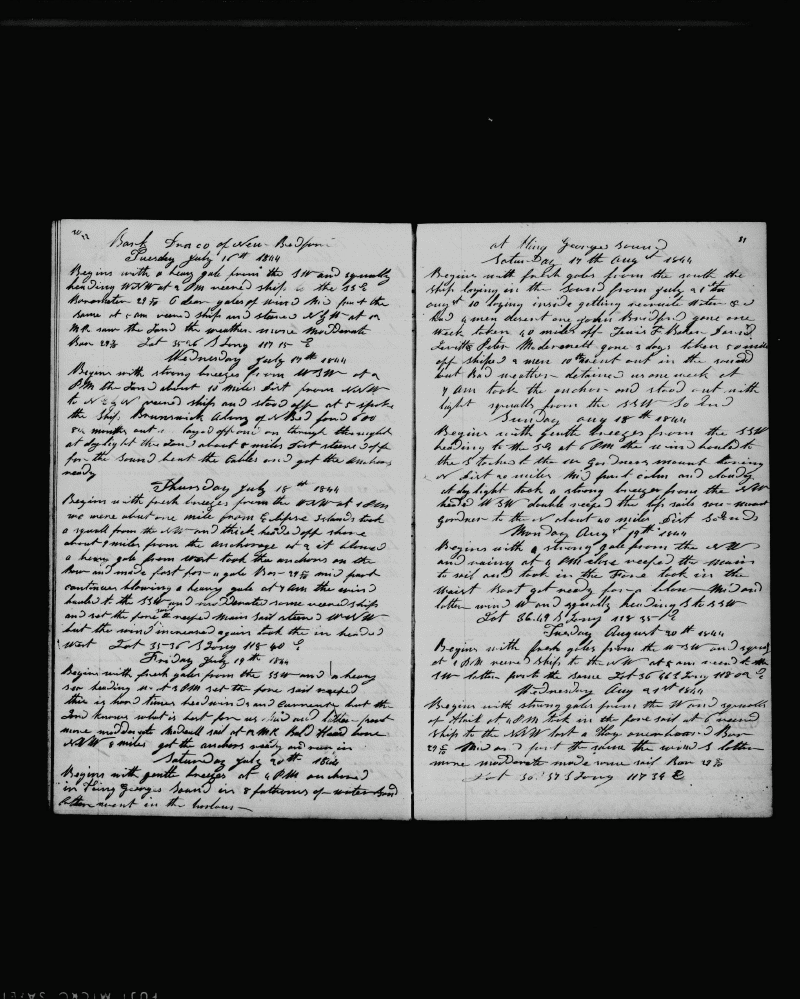 Bark Draco of New Bedford
Tuesday July 16th 1844
Begins with a heavy gale from the SW and squally
heading WNW at 2 PM veered ship to the SSE
Barometer 29 clear gales of wind Mid part the
same at am veered ship and steered N by W at 12
MR saw the land the weather more Moderate
Bar 29 Lat 35-26 S Long 117 15 E
Wednesday July 17th 1844
Begins with strong breezes from WSW at 2
PM the Land about 10 miles Dist from NNW
to N E by N veered ship and stood off at 5 spoke
the Ship Brunswick of N Bed 600
months out layed off and on through the night
at daylight the Land about 8 miles Dist steered off
for the Sound bent the Cables and got the Anchors
ready
Thursday July 18th 1844
Begins with fresh breezes from the WNW at 1 PM
we were about one mile from Eclipse Islands took
a squall from the NW and thick headed off shore
about 9 miles from the anchorage at 2 it blowed
a heavy gale from west took the anchors on the
Bow and made fast for a gale Bar 29 mid part
continues blowing a heavy gale at 7 AM the wind
hauled to the SSW and moderated some veered ships
and set the fore and reefed Main sail steered WNW
but the wind increased again took the in headed
West Lat 35-36 S Long 118-40 E
Friday July 19th 1844
Begins with fresh gales from the SSW and a heavy
sea heading W at 3 PM set the fore sail reefed
this is hard times head winds and currents but the
Lord knows what is best for us Mid and latter part
more moderate made all sail at 12 MR Bald Head bore
NNW 8 miles got the anchors ready and ran in
Saturday July 20th 1844
Begins with gentle breezes at 4 PM anchored
in King Georges Sound in 8 fathoms of water and
after went in the harbour
at King Georges Sound
Saturday 17th Augst 1844
Begins with fresh gales from the south the
ship laying in the Sound from July 21 to
augst 10 laying inside getting recruits water &c
had 4 men desert one John Bridford gone one
week taken 40 miles off Lewis F Baker David
Leavitt & Peter Mcdermott gone 3 days taken 50 miles
off shiped 2 men 10th went out in the sound
but bad weather detained us one week at
7 AM took the anchor and stood out with
light squalls from the SSW So End
Sunday aug 18th 1844
Begins with gentle breezes from the SSW
heading to the SE at 6 PM the wind hauled to
the S tacked to the W Gardners mount bearing
N Dist 20 miles Mid part calm and cloudy
at daylight took a strong breeze from the NW
headed WSW double reefed the top sails mount
gardner to the N about 40 miles Dist So Ends
Monday Augst 19th 1844
Begins with a strong gale from the NW
and rainy at 4 PM close reefed the Main
to sail and took in the Fore took in the
Waist Boat got ready for a blow Mid and
latter wind W and squally heading S to SSW
Lat 36.49 S Long 118 35 E
Tuesday August 20th 1844
Begins with fresh gales from the WSW and squall
at 1 PM veered ship to the NW at 8 am veered to the
SW latter part the same Lat 36 46 S Long 118 02 E
Wednesday Aug 21st 1844
Begins with strong gales from the W and squalls
of Hail at 4 PM took in the fore sail at 6 veered
ship to the NNW lost a Hog overboard Bar
29 Mid part the same the wind S latter
more moderate made more sail Bar 29
Lat 36.37 S Long 117 34 E